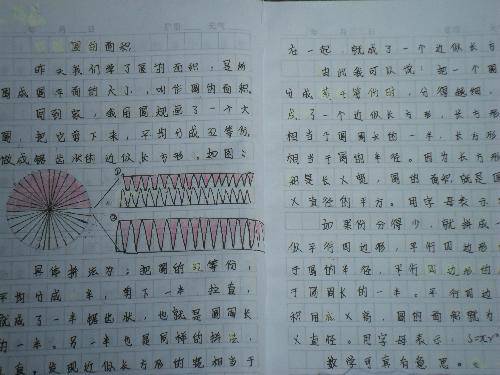 圆的面积
昨天我们学了圆的面积,是指
圆成圆平面的大小,叫作圆的面积
回到家,我用圆规画了一个大
圆,把它剪下来,平均分成32等份
做成锯齿状的近似长方形。如图:
①
②
具体拼法为:把圆的32等份,
平均分成 半,剪下一半 拉直,
就成了一半锯齿状,也就是圆周长
的一半。另一半也是同样的拼法,
直。发现近似长方形的宽相当于
在一起,就成了一个近似长方
由此我可以说:把一个圆
分成若干等份时,分得越细,
成了一个近似长方形,长方形
相当于圆周长的一半,长方形
相当于圆的半径。因为长方形
积是长×宽,圆的面积就是圆
×直径的平方。用字母表示
如果份分得少,就拼成一
似平行四边形,平行四边形
于圆的半径,平行四边形的
于圆周长的一半。平行四边
积用底×高,圆的面积就为
×直径。用字母表示,S=πr
数学可真有意思。